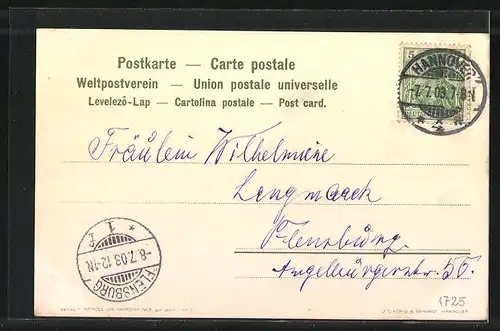 Postkarte — Carte postale
Weltpostverein — Union postale universelle
Levelező-Lap — Cartolina postale — Post card.
5
HANNOVER
-7.7.03.7-8N.
1
* *
Fräulein Wilhelmine
Lengmarch
Flensburg.
Angelburgerstr. 55.
* 1 f
-8.7.03.12-1N.
FLENSBURG
1725
HANNOVER